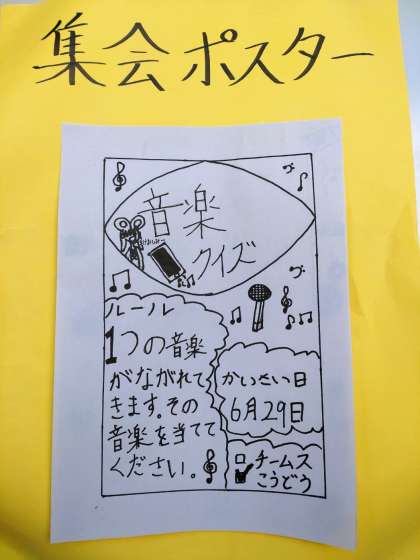 集会ポスター
音楽
クイズ
ルール
1つの音楽
がながれて
きます。その
音楽を当てて
ください。
かいさい日
6月29日
チームス
こうどう